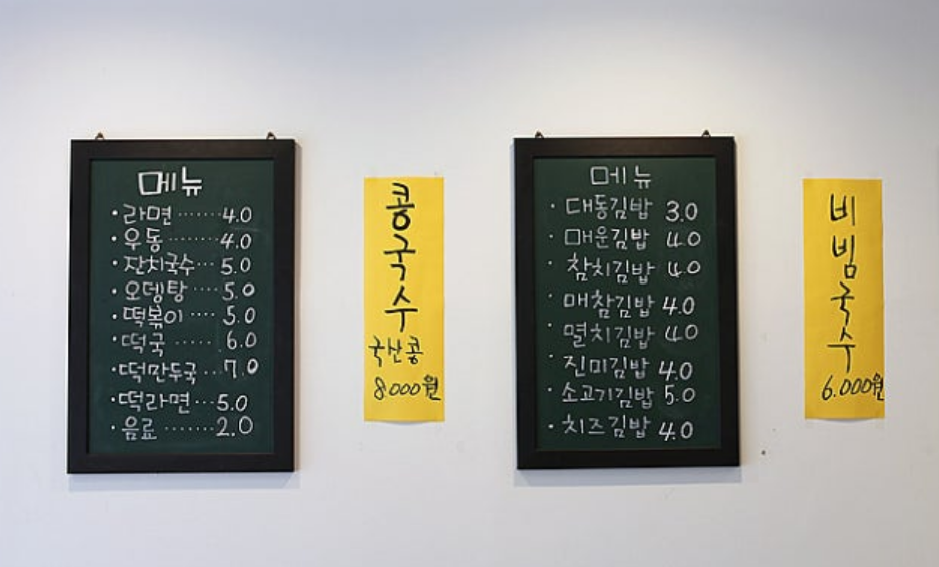 메뉴
·라면 ······ 4.0
·우동 ······· 4.0
·잔치국수 ··· 5.0
·오뎅탕 ···· 5.0
·떡볶이 ···· 5.0
·떡국 ····· 6.0
·떡만두국 ··· 7.0
·떡라면 ··· 5.0
·음료 ······· 2.0
콩
국
수
국산콩
8.000원
메뉴
· 대동김밥 3.0
· 매운김밥 4.0
· 참치김밥 4.0
· 매참김밥 4.0
· 멸치김밥 4.0
· 진미김밥 4.0
· 소고기김밥 5.0
· 치즈김밥 4.0
비
빔
국
수
6.000원